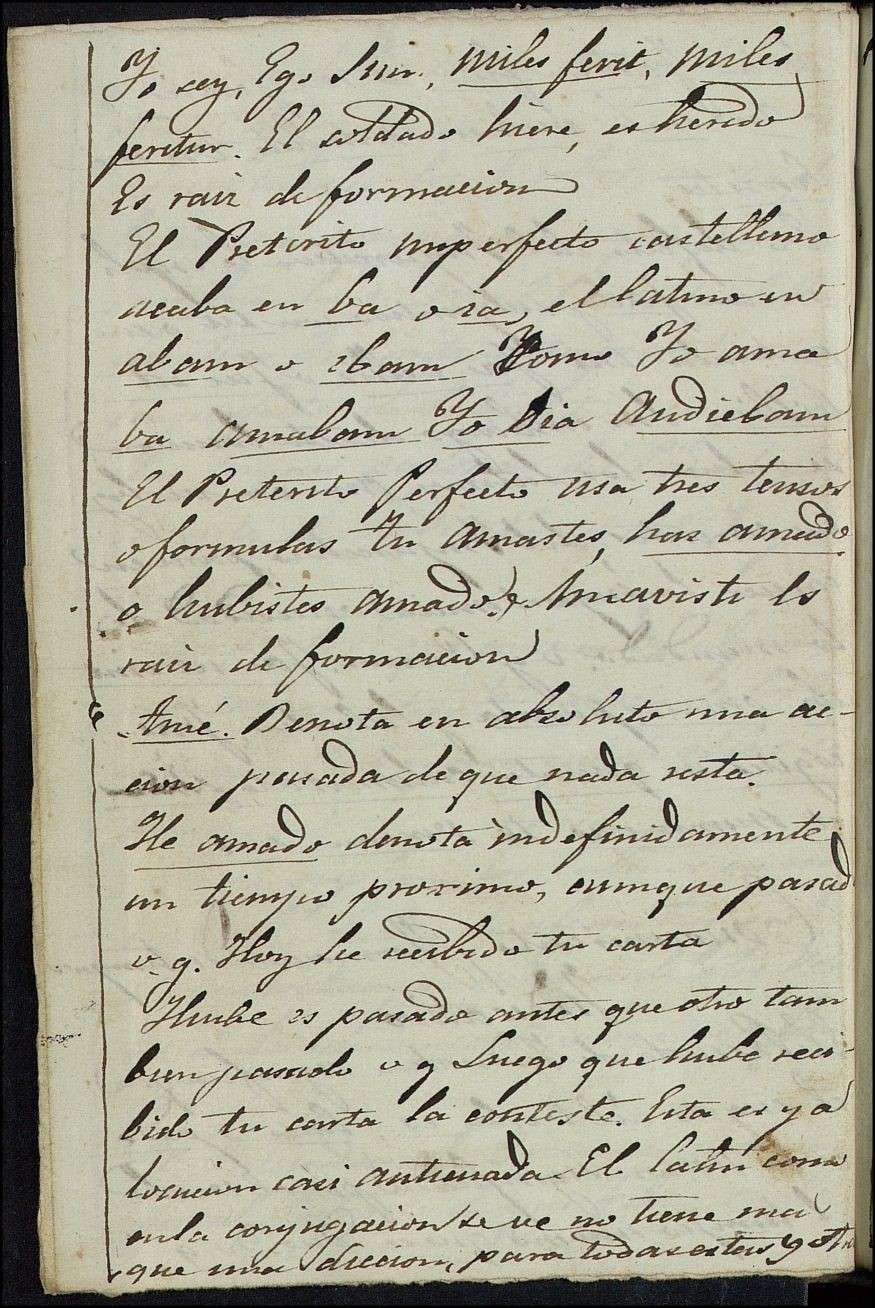 Yo soy, Ego Sum, miles ferit, miles
feritur. El soldado hiere, es herido
Es raiz de formacion
El Preterito imperfecto castellano
acaba en ba o ia, el latino en
abam o ebam Como Yo ama
ba amabam Yo Oia Audiebam
El Preterito Perfecto usa tres
o formulas tu amastes, has amado
o hubistes amado, Amavisti Es
raiz de formacion
Amé. Denota en absoluto una ac-
cion pasada de que nada resta.
He amado denota indefinidamente
un tiempo proximo, aunque pasad
v. g. Hoy he recibido tu carta
Hube es pasado antes que otro tam
bien pasado v g Luego que hube reci-
bido tu carta la conteste. Esta es ya
locucion casi anticuada. El latin como
en la conjugacion se ve no tiene ma
que una diccion, para todas estas y